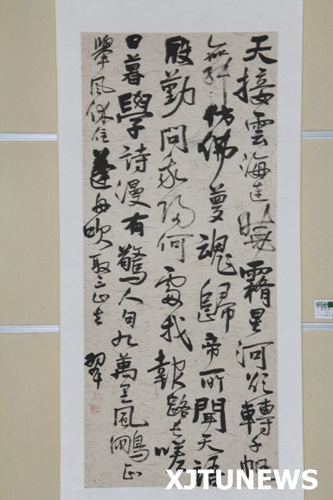 天接雲海連曉霜星河欲轉千帆
舞彷彿夢魂歸帝所聞天語
殷勤問我歸何處我報路長嗟
日暮學詩漫有驚人句九萬里風鵬正
舉風休住蓬舟吹取三山去
XJTUNEWS